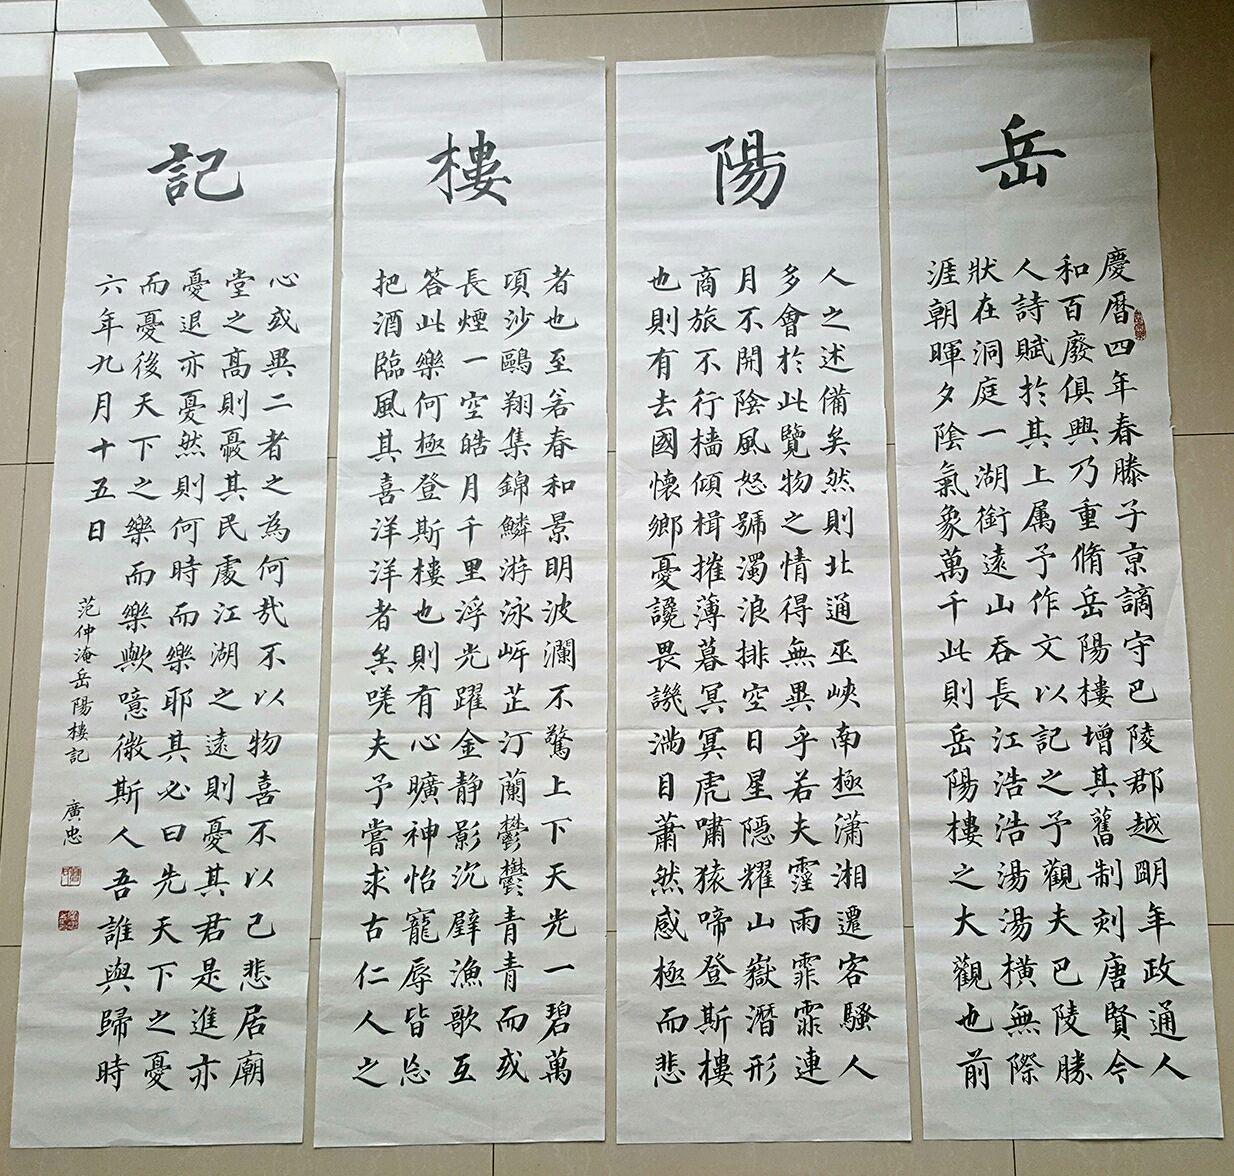 岳陽樓記
慶暦四年春滕子京謫守巴陵郡越朙年政通人
和百廢俱興乃重脩岳陽樓增其舊制刻唐賢今
人詩賦於其上属予作文以記之予觀夫巴陵勝
狀在洞庭一湖銜遠山吞長江浩浩湯湯橫無際
涯朝暉夕陰氣象萬千此則岳陽樓之大觀也前
人之述備矣然則北通巫峽南極瀟湘遷客騷人
多會於此覽物之情得無異乎若夫霪雨霏霏連
月不開陰風怒號濁浪排空日星隱耀山嶽潛形
商旅不行檣傾楫摧薄暮冥冥虎嘯猿啼登斯樓
也則有去國懷鄉憂讒畏譏滿目蕭然感極而悲
者也至若春和景明波瀾不驚上下天光一碧萬
頃沙鷗翔集錦鱗游泳岸芷汀蘭鬱鬱青青而或
長煙一空皓月千里浮光躍金静影沉璧漁歌互
答此樂何極登斯樓也則有心曠神怡寵辱皆忘
把酒臨風其喜洋洋者矣嗟夫予嘗求古仁人之
心或異二者之為何哉不以物喜不以己悲居廟
堂之高則憂其民處江湖之遠則憂其君是進亦
憂退亦憂然則何時而樂耶其必曰先天下之憂
而憂後天下之樂而樂歟噫微斯人吾誰與歸時
六年九月十五日
范仲淹岳陽樓記 廣忠